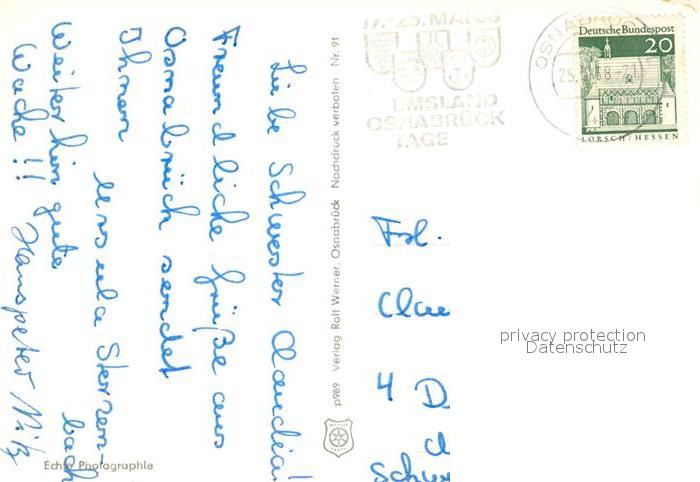 Liebe Schwester Claudia!
Freundliche Grüße aus
Osnabrück sendet
Ihnen
Ursula Sterzen-
bach
Weiterhin gute
Wache!! Hanspeter
Echte Photographie
p989 Verlag Rolf Werner, Osnabrück Nachdruck verboten Nr. 91
17.-25. MAI 68
EMSLAND
OSNABRÜCK
TAGE
OSNABRÜCK
25. 68-21
Deutsche Bundespost
20
LORSCH/HESSEN
Frl.
Clau
4 D
Schw
privacy protection
Datenschutz